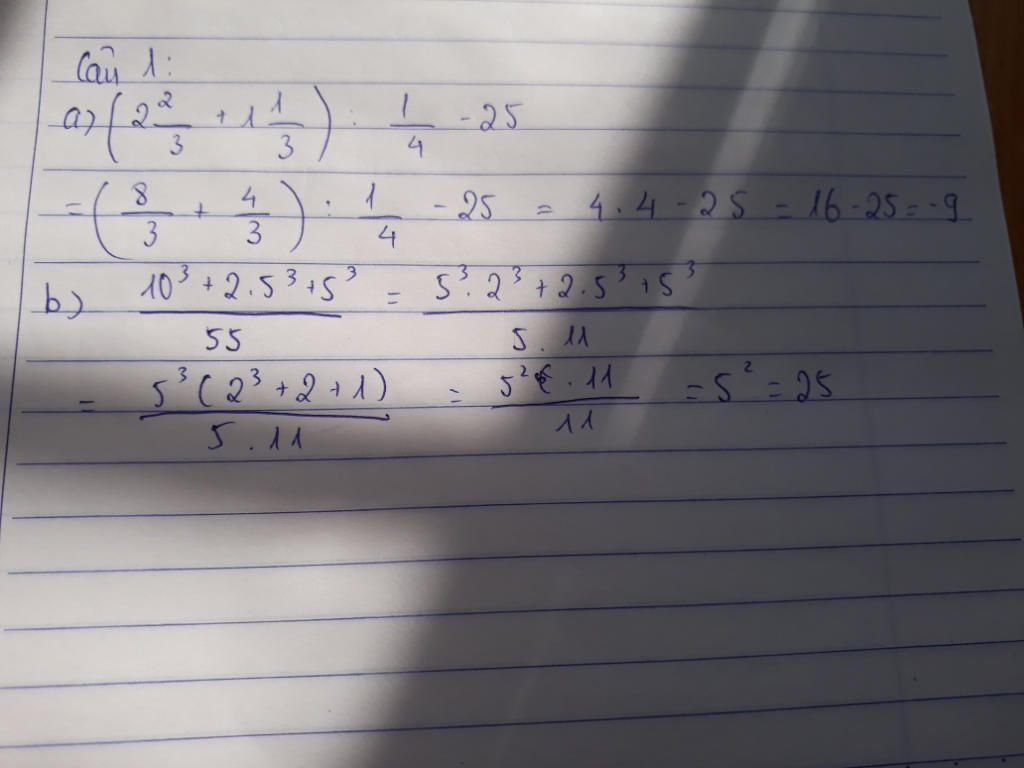 Câu 1:
a) (2 2/3 + 1 1/3) : 1/4 - 25
= (8/3 + 4/3) : 1/4 - 25 = 4 . 4 - 25 = 16 - 25 = -9
b) (10³ + 2.5³ + 5³)/55 = (5³.2³ + 2.5³ + 5³)/(5.11)
= (5³(2³ + 2 + 1))/(5.11) = (5² . 11)/11 = 5² = 25